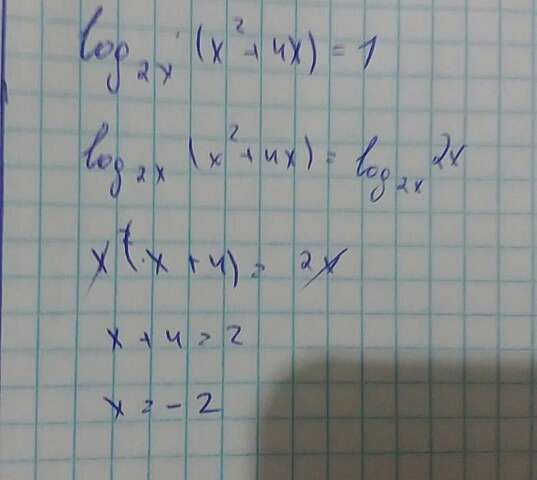 log₂ₓ (x² + 4x) = 1
log₂ₓ (x² + 4x) = log₂ₓ 2x
x (x + 4) = 2x
x + 4 = 2
x = - 2